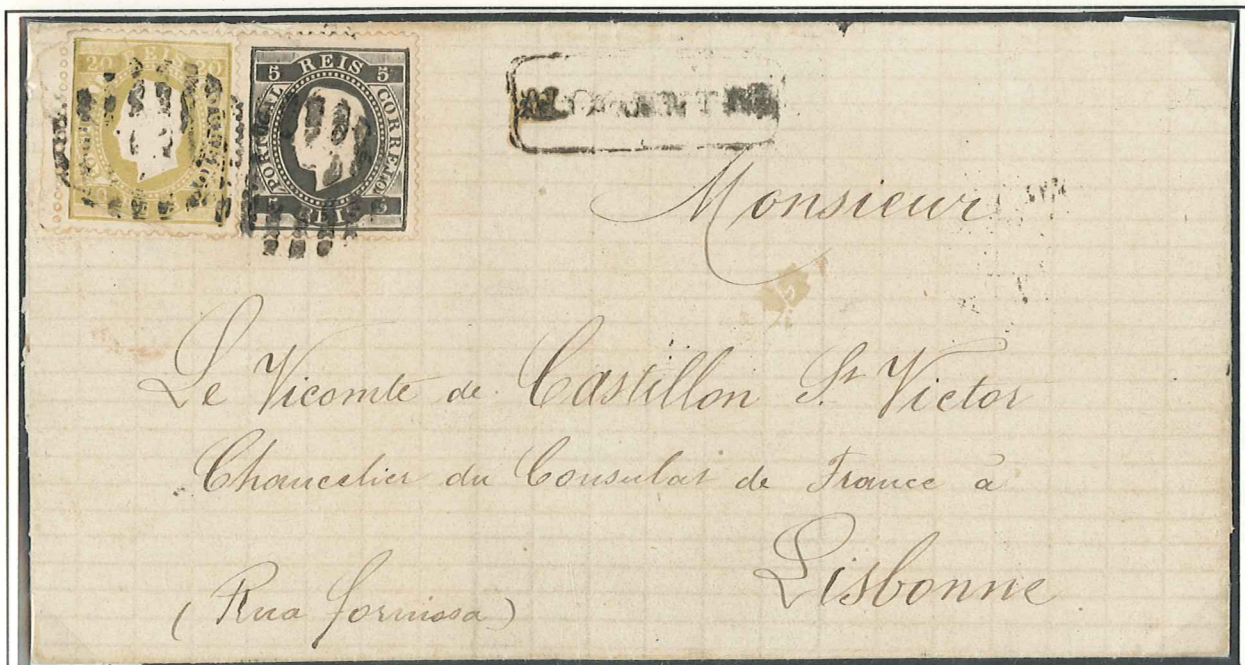 20 REIS 20
5 REIS 5
PORTUGAL CORREIO
5 REIS 5
Monsieur
Le Vicomte de Castillon St Victor
Chancelier du Consulat de France à
Lisbonne
(Rua formosa)